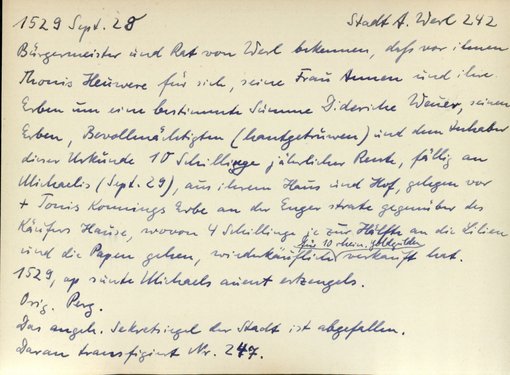 1529 Sept. 28 Stadt A. Werl 242
Bürgermeister und Rat von Werl bekennen, daß vor ihnen
Thonis Heuwere für sich, seine Frau Annen und ihre
Erben um eine bestimmte Summe Diderike Weuer, seinen
Erben, Bevollmächtigten (hantgetruwen) und dem Inhaber
dieser Urkunde 10 Schillinge jährlicher Rente, fällig an
Michaelis (Sept. 29), aus ihrem Haus und Hof, gelegen vor
+ Tonis Konnings Erbe an der Enger strate gegenüber des
Käufers Hause, wovon 4 Schillinge je zur Hälfte an die Lilien
für 10 rhein. Goldgulden
und die Papen gehen, wiederkäuflich verkauft hat.
1529, op sunte Michaels avent ertzengels.
Orig. Perg.
Das angeh. Sekretsiegel der Stadt ist abgefallen.
Daran transfigiert Nr. 247.